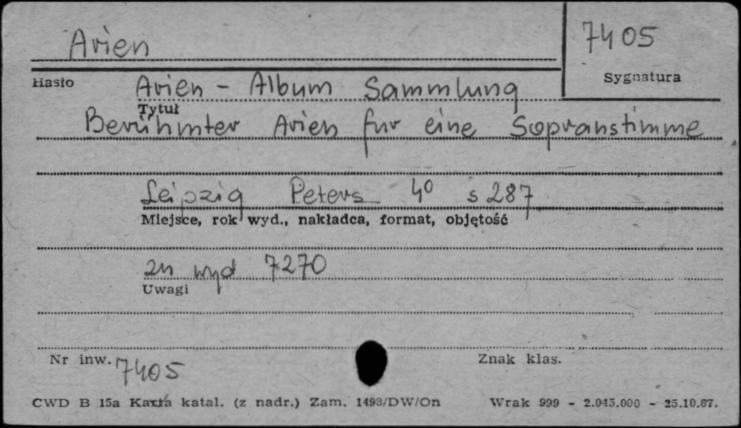 Arien
7405
Hasło
Sygnatura
Arien - Album Sammlung
Tytuł
Berühmter Arien für eine Sopranstimme
Leipzig Peters 4° s 287
Miejsce, rok wyd., nakładca, format, objętość
zn wyd 7270
Uwagi
Nr inw. 7405
Znak klas.
CWD B 15a Karta katal. (z nadr.) Zam. 1493/DW/On Wrak 999 - 2.045.000 - 25.10.67.